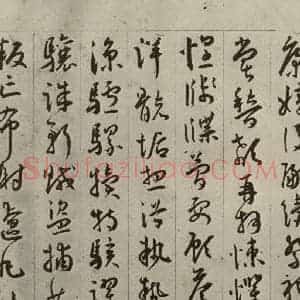 康嫡後嗣續祭祀
嘗稽顙再拜悚懼
惶牋牒簡要顧答
詳骸垢想浴執熱
涼驢騾犢特駭躍
驤誅斬賊盜捕獲
叛亡布射遼丸
Shufaziliao.com